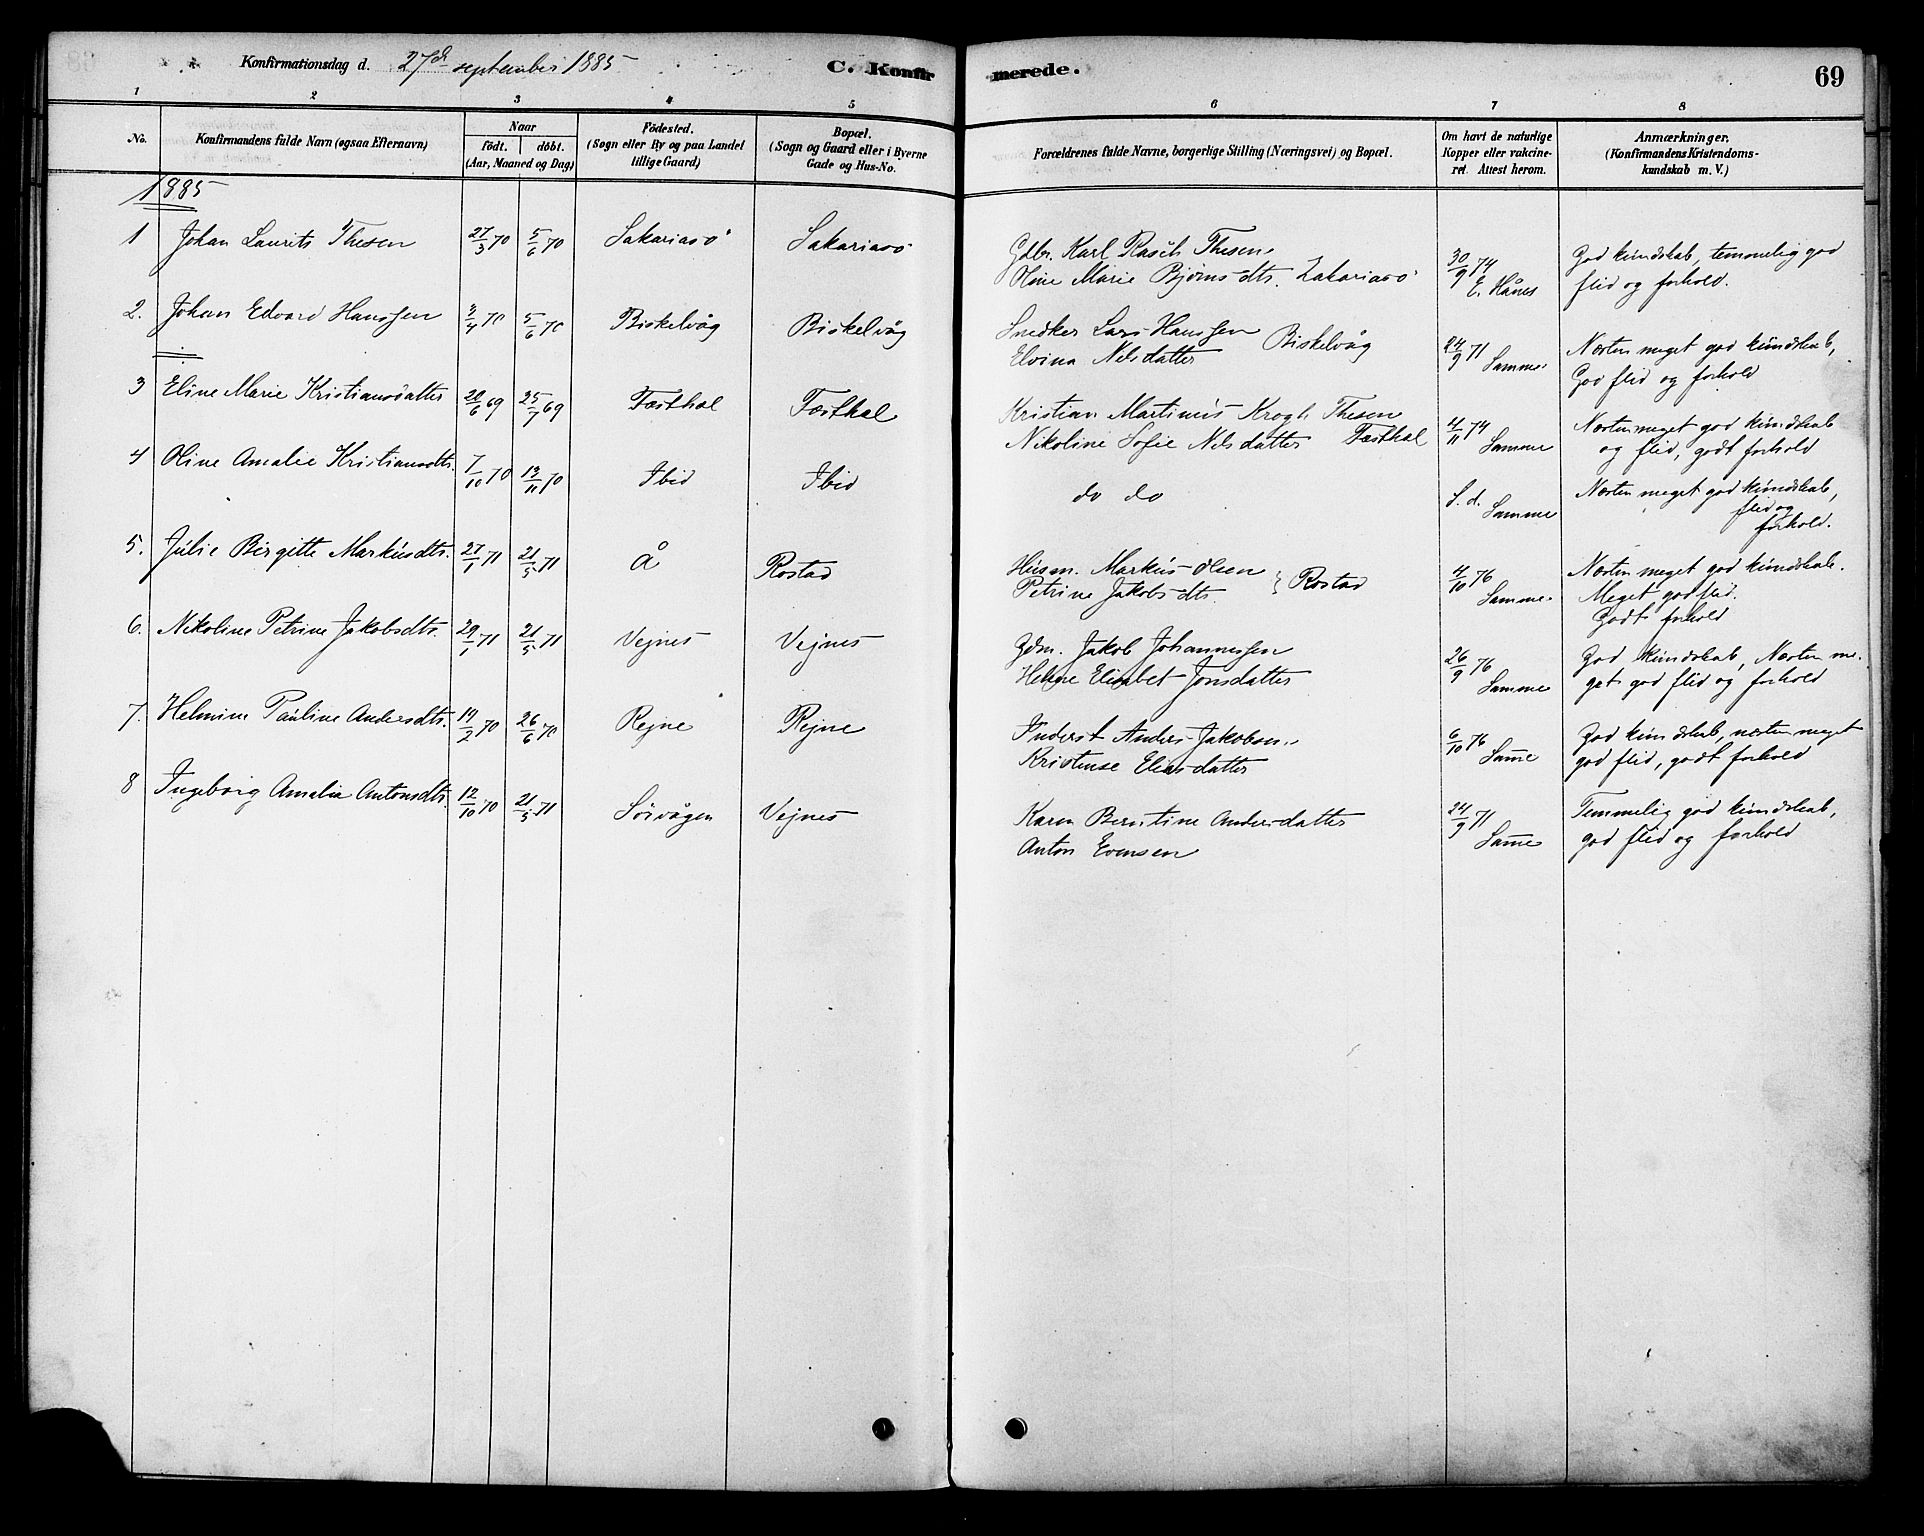 Konfirmationsdag d. 27de september 1885
C. Konfirmerede.
69
1 2 3 4 5 6 7 8
No.
Konfirmandens fulde Navn (ogsaa Efternavn)
Naar
Födt. döbt.
(Aar, Maaned og Dag)
Födested.
(Sogn eller By og paa Landet
tillige Gaard)
Bopæl.
(Sogn og Gaard eller i Byerne
Gade og Hus-No.
Forældrenes fulde Navne, borgerlige Stilling (Næringsvei) og Bopæl.
Om havt de naturlige
Kopper eller vakcine-
ret. Attest herom.
Anmærkninger,
(Konfirmandens Kristendoms-
kundskab m. V.)
1885
1 Johan Laurits Thesen 27/3 70 5/6 70 Sakariasö Sakariasö
Gdbr. Karl Rasch Thesen,
Oline Marie Bjørnsdts. Zakariasö
30/9 74
E. Hånes
God kundskab, temmelig god
flid og forhold.
2. Johan Edvard Hanssen 3/4 70 5/6 70 Biskelvåg Biskelvåg
Snedker Lars Hanssen
Elvina Nelsdatter Biskelvåg
24/9 71
Samme
Næsten meget god kundskab,
God flid og forhold
3 Eline Marie Kristiansdatter 20/6 69 25/7 69 Tæsthæl Tæsthæl
Kristian Martinus Krogh Thesen
Nikoline Sofie Nelsdatter Tæsthæl
4/11 74
Samme
Næsten meget god kundskab
og flid, godt forhold
4 Oline Amalie Kristiansdts. 7/10 70 13/11 70 Ibid Ibid
do do
S. d. Samme
Næsten meget god kundskab,
flid og
forhold.
5. Julie Birgitte Markusdts. 27/1 71 21/5 71 Å Rostad
Husm. Markus Olsen
Petrine Jakobsdts. } Rostad
4/10 76
Samme
Næsten meget god kundskab.
Meget god flid.
Godt forhold
6. Nikoline Petrine Jakobsdts. 29/1 71 21/5 71 Vejnes Vejnes
Gdm. Jakob Johannessen
Helene Elisabet Jonsdatter
26/9 76
Samme
God kundskab, Næsten me-
get god flid og forhold
7. Helmine Pauline Andersdts. 19/2 70 26/6 70 Rejne Rejne
Inderst Anders Jakobsen
Kristense Eliasdatter
6/10 76
Samme
God kundskab, næsten meget
god flid, godt forhold
8 Ingeborg Amalia Antonsdts. 12/10 70 21/5 71 Sörvågen Vejnes
Karen Berntine Andersdatter
Anton Evensen
24/9 71
Samme
Temmelig god kundskab,
god flid og forhold